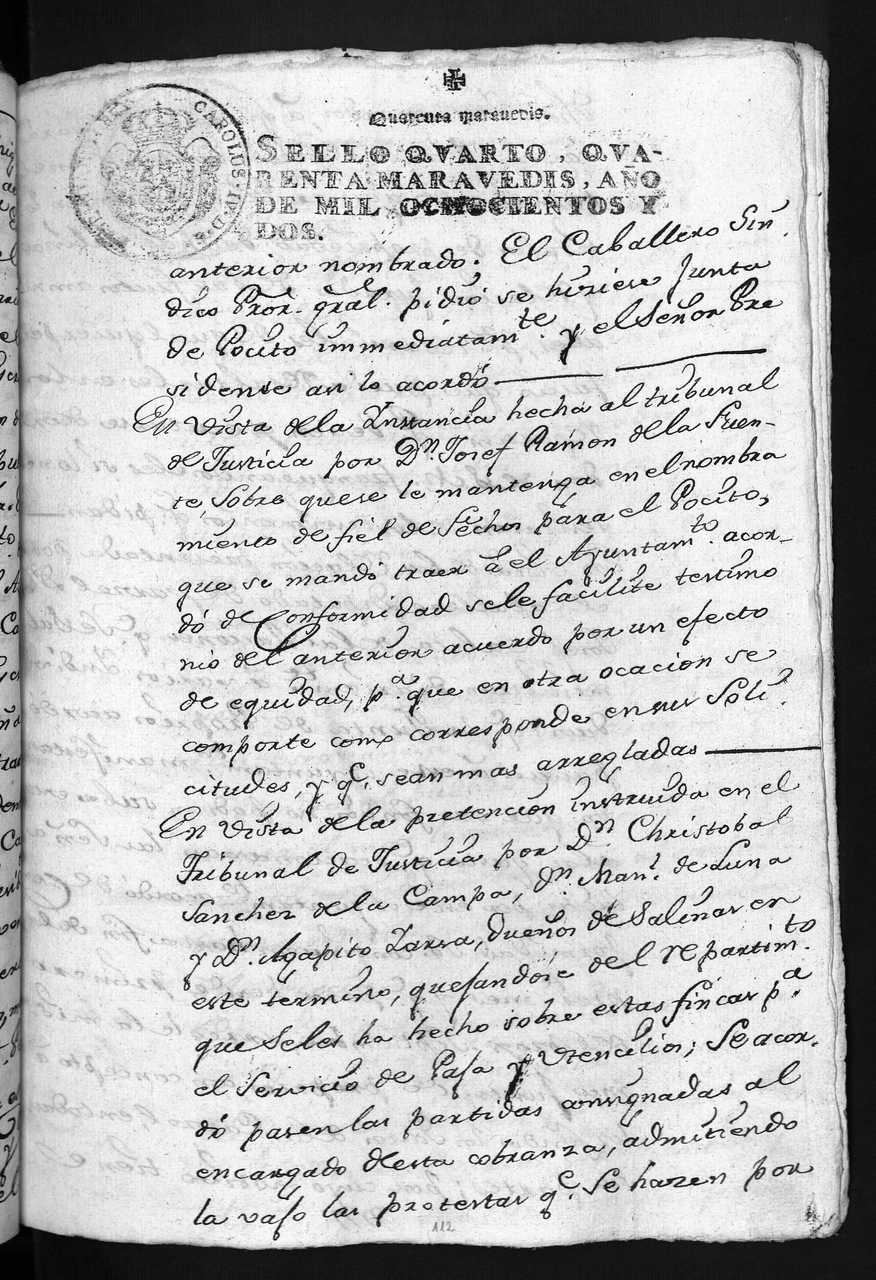 Quarenta maravedis.
SELLO QVARTO, QVA-
RENTA MARAVEDIS, AÑO
DE MIL OCHOCIENTOS Y
DOS.
CAROLUS·IV·D·
anterior nombrado. El Caballero Sin-
dico Pror. gral. pidió se hiciese Junta
de Pocito immediatamte. y el Señor Pre
sidente asi lo acordó
En vista dela Instancia hecha al tribunal
de Justicia por Dn. Josef Ramon dela Fuen-
te, sobre quese le mantenga en el nombra
miento de fiel de fechos para el Pocito,
que se mandó traer á el Ayuntamto. acor-
dó de Conformidad sele facilite testimo
nio del anterior acuerdo por un efecto
de equidad, pa. que en otra ocacion se
comporte como corresponde en sus Soli-
citudes, y qe. sean mas arregladas
En vista dela pretencion instruida en el
Tribunal de Justicia por Dn. Christobal
Sanchez dela Campa, dn. Manl. de Luna
y Dn. Agapito Larra, dueños de Salinas en
este termino, quejandose del repartimto.
que seles ha hecho sobre estas fincas pa.
el servicio de Paja y Utencilios; Se acor-
dó pasen las partidas consignadas al
encargado desta cobranza, admitiendo
la vaso las protestas qe. se hazen por
112